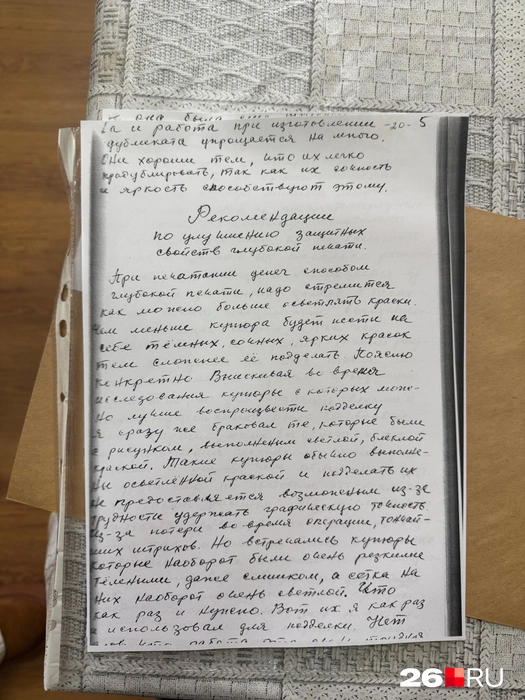 она была
и работа при изготовлении -20- 5
дубликата упрощается на много.
Они хороши тем, что их легко
продублировать, так как их сочность
и яркость способствуют этому.
Рекомендации
по улучшению защитных
свойств глубокой печати.
При печатании денег способом
глубокой печати, надо стремится
как можно больше осветлять краски.
Чем меньше купюра будет нести на
себе тёмных, сочных, ярких красок
тем сложнее её подделать. Поясню
конкретно. Выискивая во время
исследования купюры с которых мож-
но лучше воспроизвести подделку
я сразу же браковал те, которые были
с рисунком, выполненым светлой, блеклой
краской. Такие купюры обычно выполне-
ны осветлённой краской и подделать их
не предоставляется возможным из-за
трудности удержать графическую точность
из-за потери во время операции, тончай-
ших штрихов. Но встречались купюры
которые наоборот были очень резкими
тёмными, даже слишком, а сетка на
них наоборот очень светлой. Что
как раз и нужно. Вот их я как раз
и использовал для подделки. Нет
26.RU